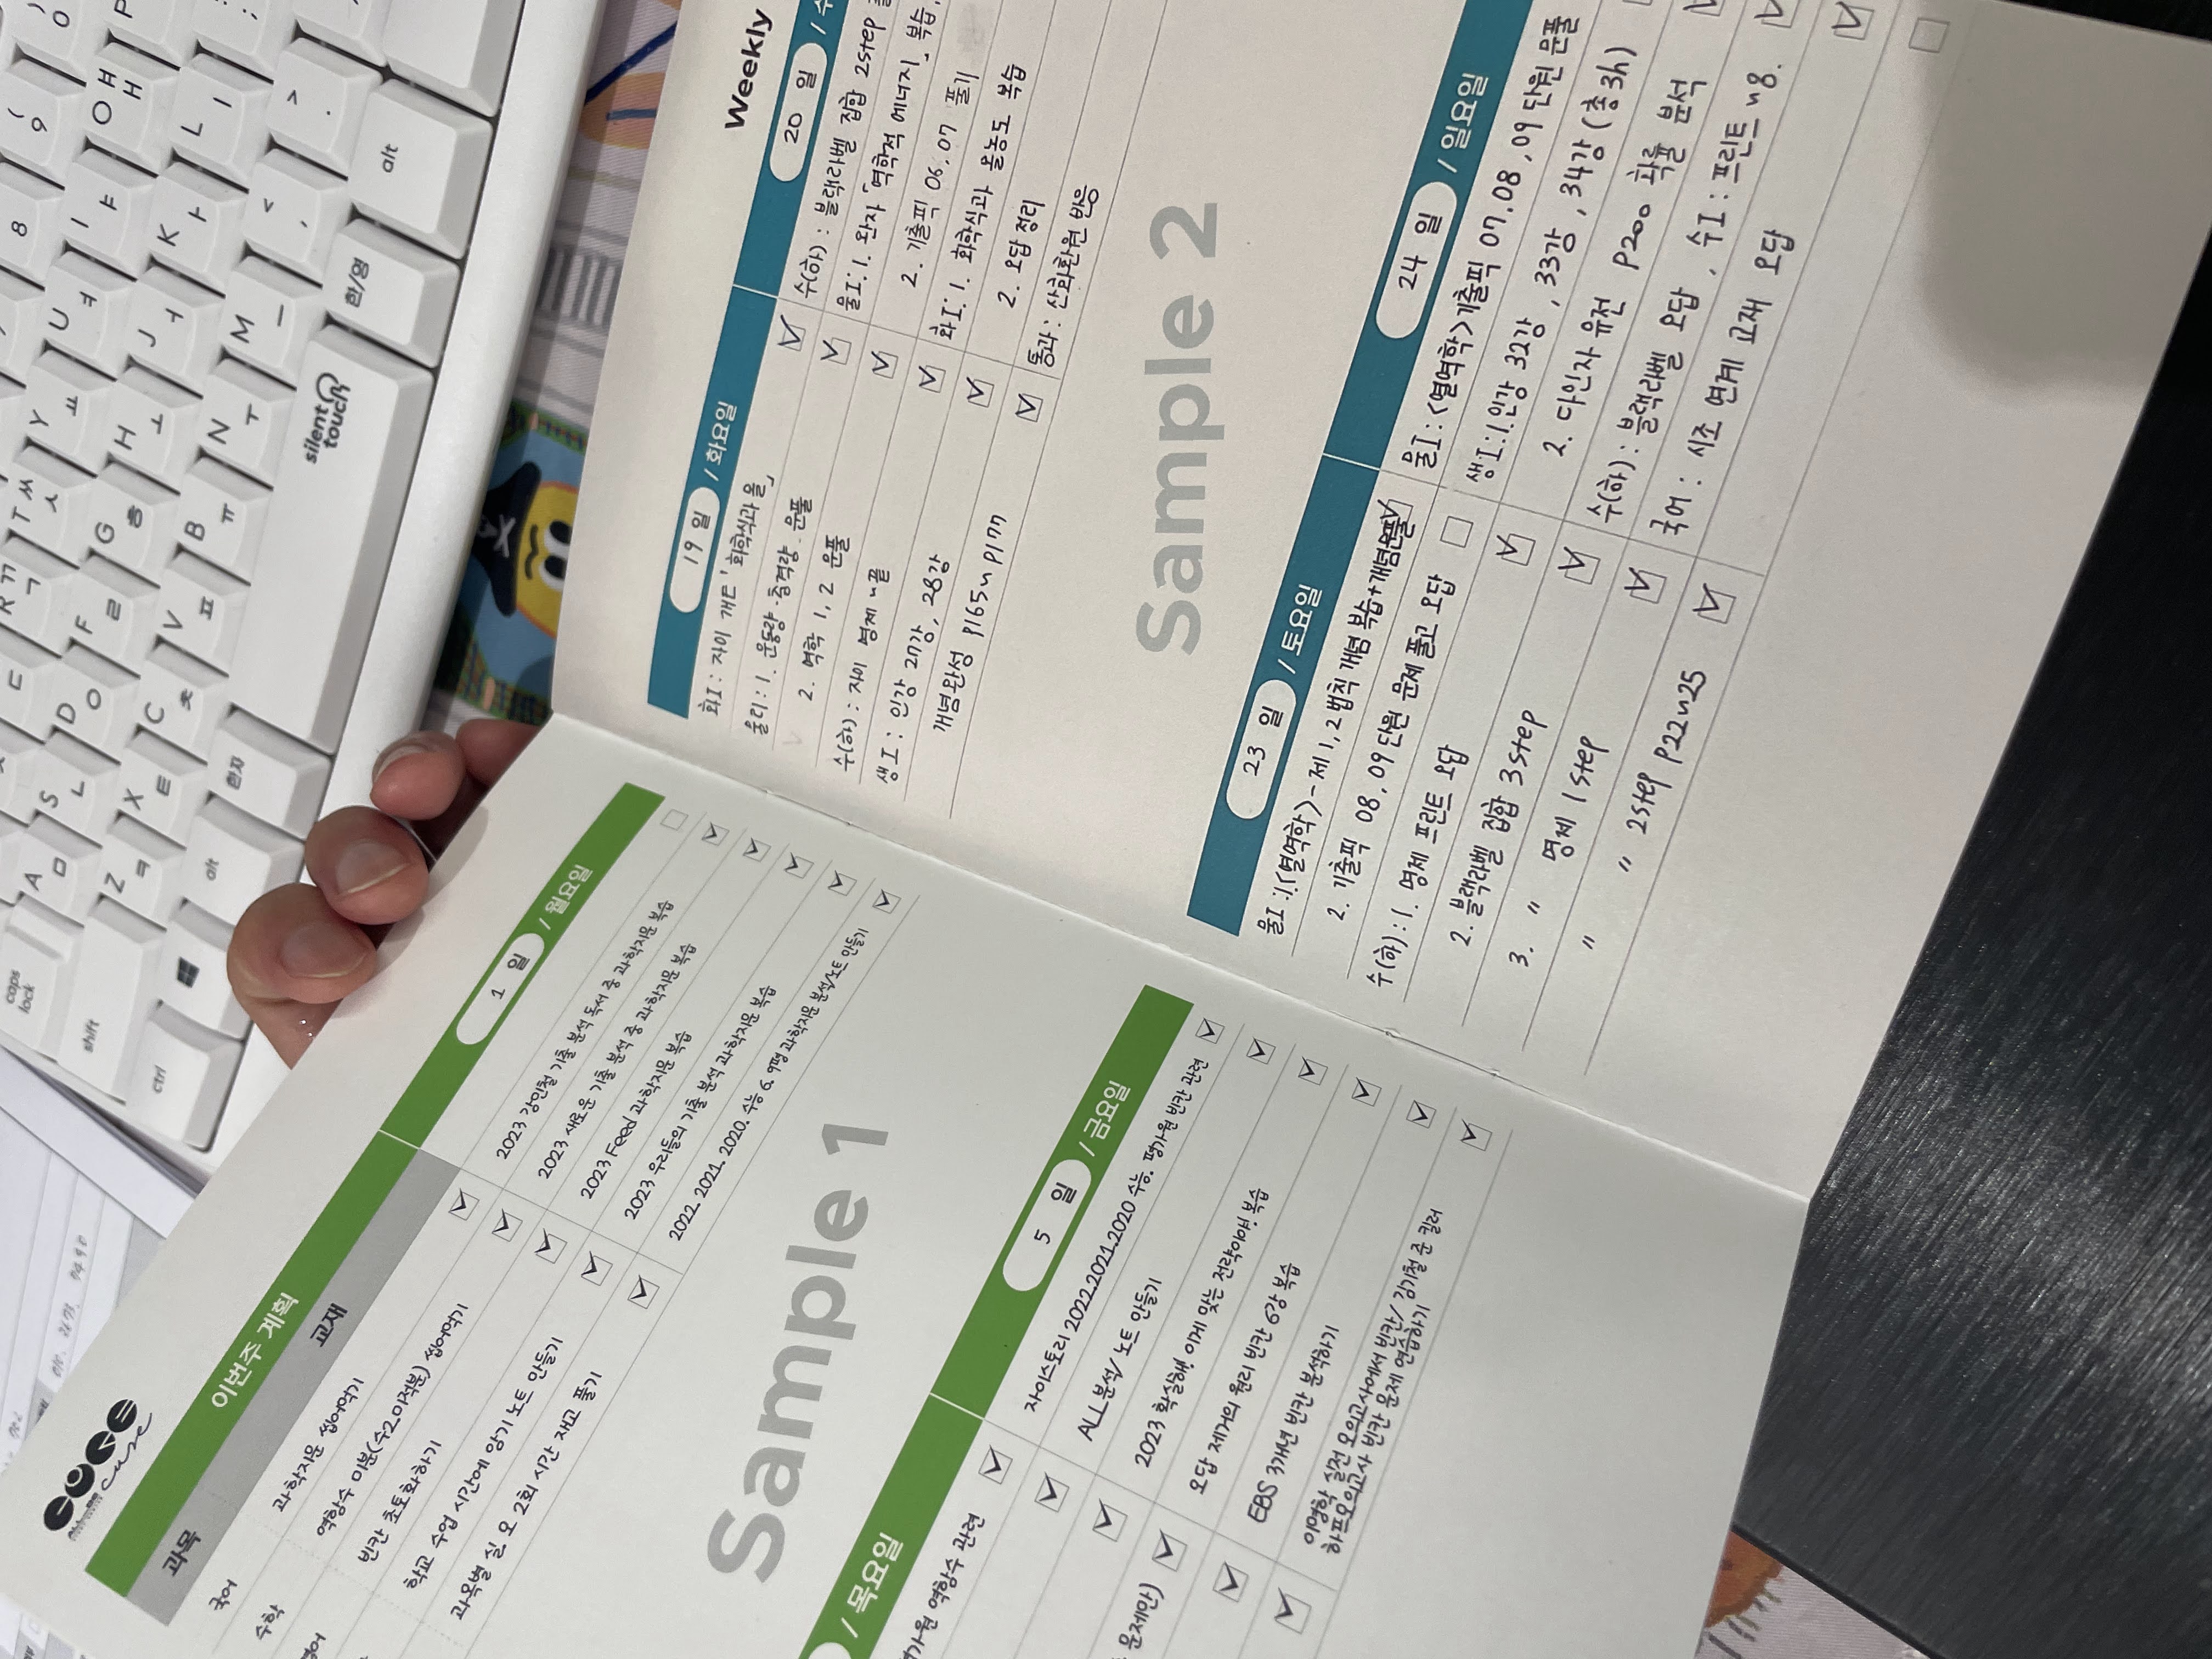 CUBE
cure
이번주 계획
과목
교재
국어
과학지문 씹어먹기
수학
역함수 미분(수2.미적분) 씹어먹기
영어
빈칸 초토화하기
학교 수업 시간에 암기 노트 만들기
과목별 실 모 2회 시간 재고 풀기
1 일 / 월요일
2023 강민철 기출 분석 독서 중 과학지문 복습
2023 새로운 기출 분석 중 과학지문 복습
2023 Feed 과학지문 복습
2023 우리들의 기출 분석 과학지문 복습
2022. 2021. 2020. 수능 6. 9평 과학지문 분석/노트 만들기
Sample 1
/ 목요일
평가원 역함수 관련
문제만)
5 일 / 금요일
자이스토리 2022.2021.2020 수능. 평가원 빈칸 관련
ALL분석/ 노트 만들기
2023 확실해! 이게 맞는 전략이야! 복습
오답 제거의 원리 빈칸 6강 복습
EBS 3개년 빈칸 분석하기
이명학 실전 모의고사에서 빈칸/ 김기철 준 킬러
하프모의고사 빈칸 문제 연습하기
Weekly
19 일 / 화요일
화I : 자이 개E「화학식과 몰」
물리 : 1. 운동량·충격량 문풀
2. 역학 1, 2 문풀
수(하) : 자이 명제 ~끝
생I : 인강 27강, 28강
개념완성 p165~p177
20 일 / 수
수(하) : 블랙라벨 집합 2step
물I : 1. 완자「역학적 에너지」 복습,
2. 기출픽 06, 07 풀기
화I : 1. 화학식과 몰농도 복습
2. 오답 정리
통과 : 산화환원 반응
Sample 2
23 일 / 토요일
물I : 1. <열역학> - 제 1, 2 법칙 개념 복습+개념문풀
2. 기출픽 08, 09 단원 문제 풀고 오답
수(하) : 1. 명제 프린트 오답
2. 블랙라벨 집합 3step
3. 〃 명제 1step
〃 〃 2step p22~25
24 일 / 일요일
물I : <열역학> 기출픽 07, 08, 09 단원 문풀
생I : 1. 인강 32강, 33강, 34강 (총3h)
2. 다인자 유전 p200 확률 분석
수(하) : 블랙라벨 오답, 수I : 프린트 ~8.
국어 : 시조 연계 교재 오답
caps lock
A ㅁ
S ㄴ
D ㅇ
F ㄹ
G ㅎ
H ㅗ
J ㅓ
K ㅏ
L ㅣ
R ㄲ ㄱ
T ㅆ ㅅ
Y ㅛ
U ㅕ
I ㅑ
O ㅒ ㅐ
P
8
( 9
) 0
shift
Z ㅋ
X ㅌ
C ㅊ
V ㅍ
B ㅠ
N ㅜ
M ㅡ
< ,
> .
ctrl
alt
한자
silent touch
한/영
alt